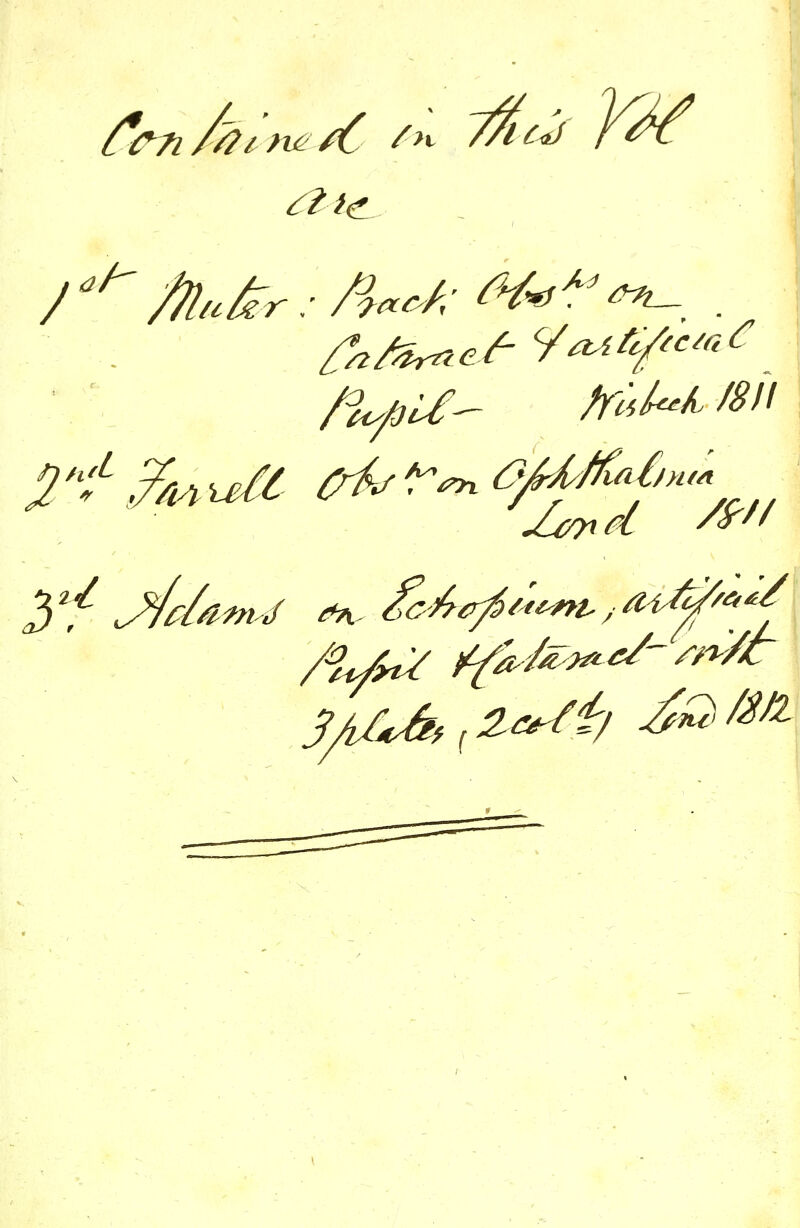 Contained in this Vol
are
1st Muter : Pract: Obsns on
Cataract & artificial
Pupil - Wisbech 1811
2nd Farrell Obsns on Ophthalmia
Lond 1811
3rd Adams on Ectropium, artificial
Pupil & Cataract with
3 plates (2 cold) Lond 1812